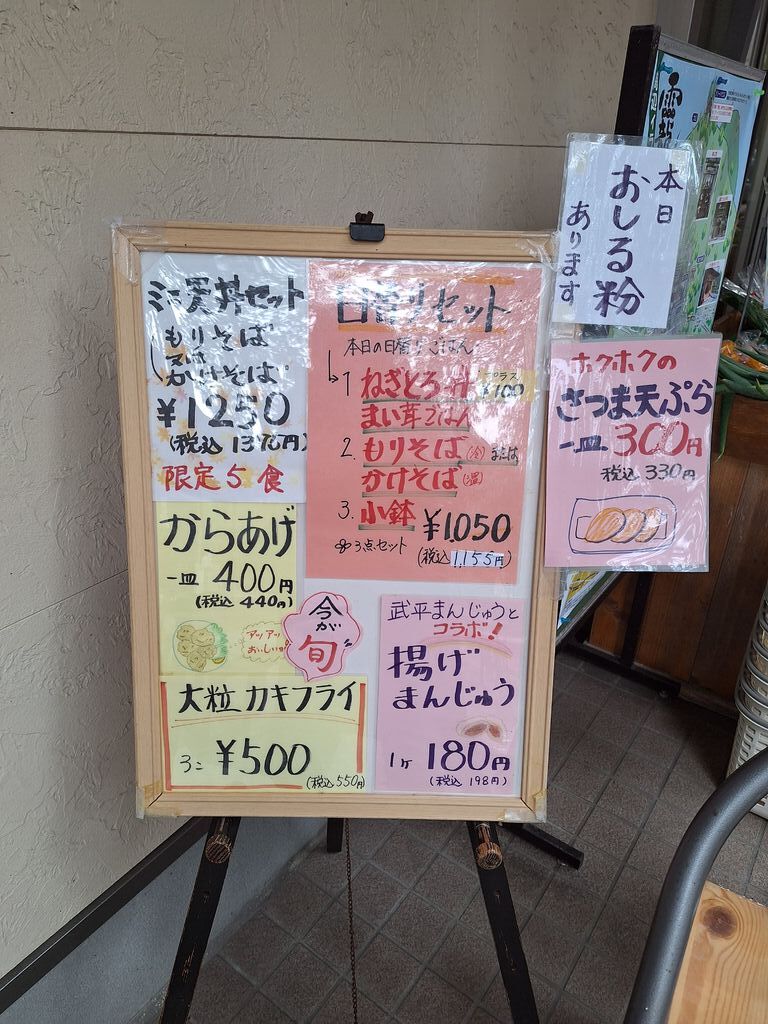 ミニ天丼セット
もりそば
又は
かけそば
¥1250
(税込 1375円)
限定5食
日替りセット
本日の日替りごはん
1 ねぎとろ丼 プラス¥100
まい茸ごはん
2. もりそば(冷) または
かけそば(温)
3. 小鉢
3点セット
¥1,050
(税込 1,155円)
からあげ
一皿 400円
(税込 440円)
アツアツ
おいしいヨ
今が
旬
大粒カキフライ
3コ ¥500
(税込 550円)
武平まんじゅうと
コラボ!
揚げ
まんじゅう
1ヶ 180円
(税込 198円)
本日
おしる粉
あります
ホクホクの
さつま天ぷら
一皿 300円
税込 330円